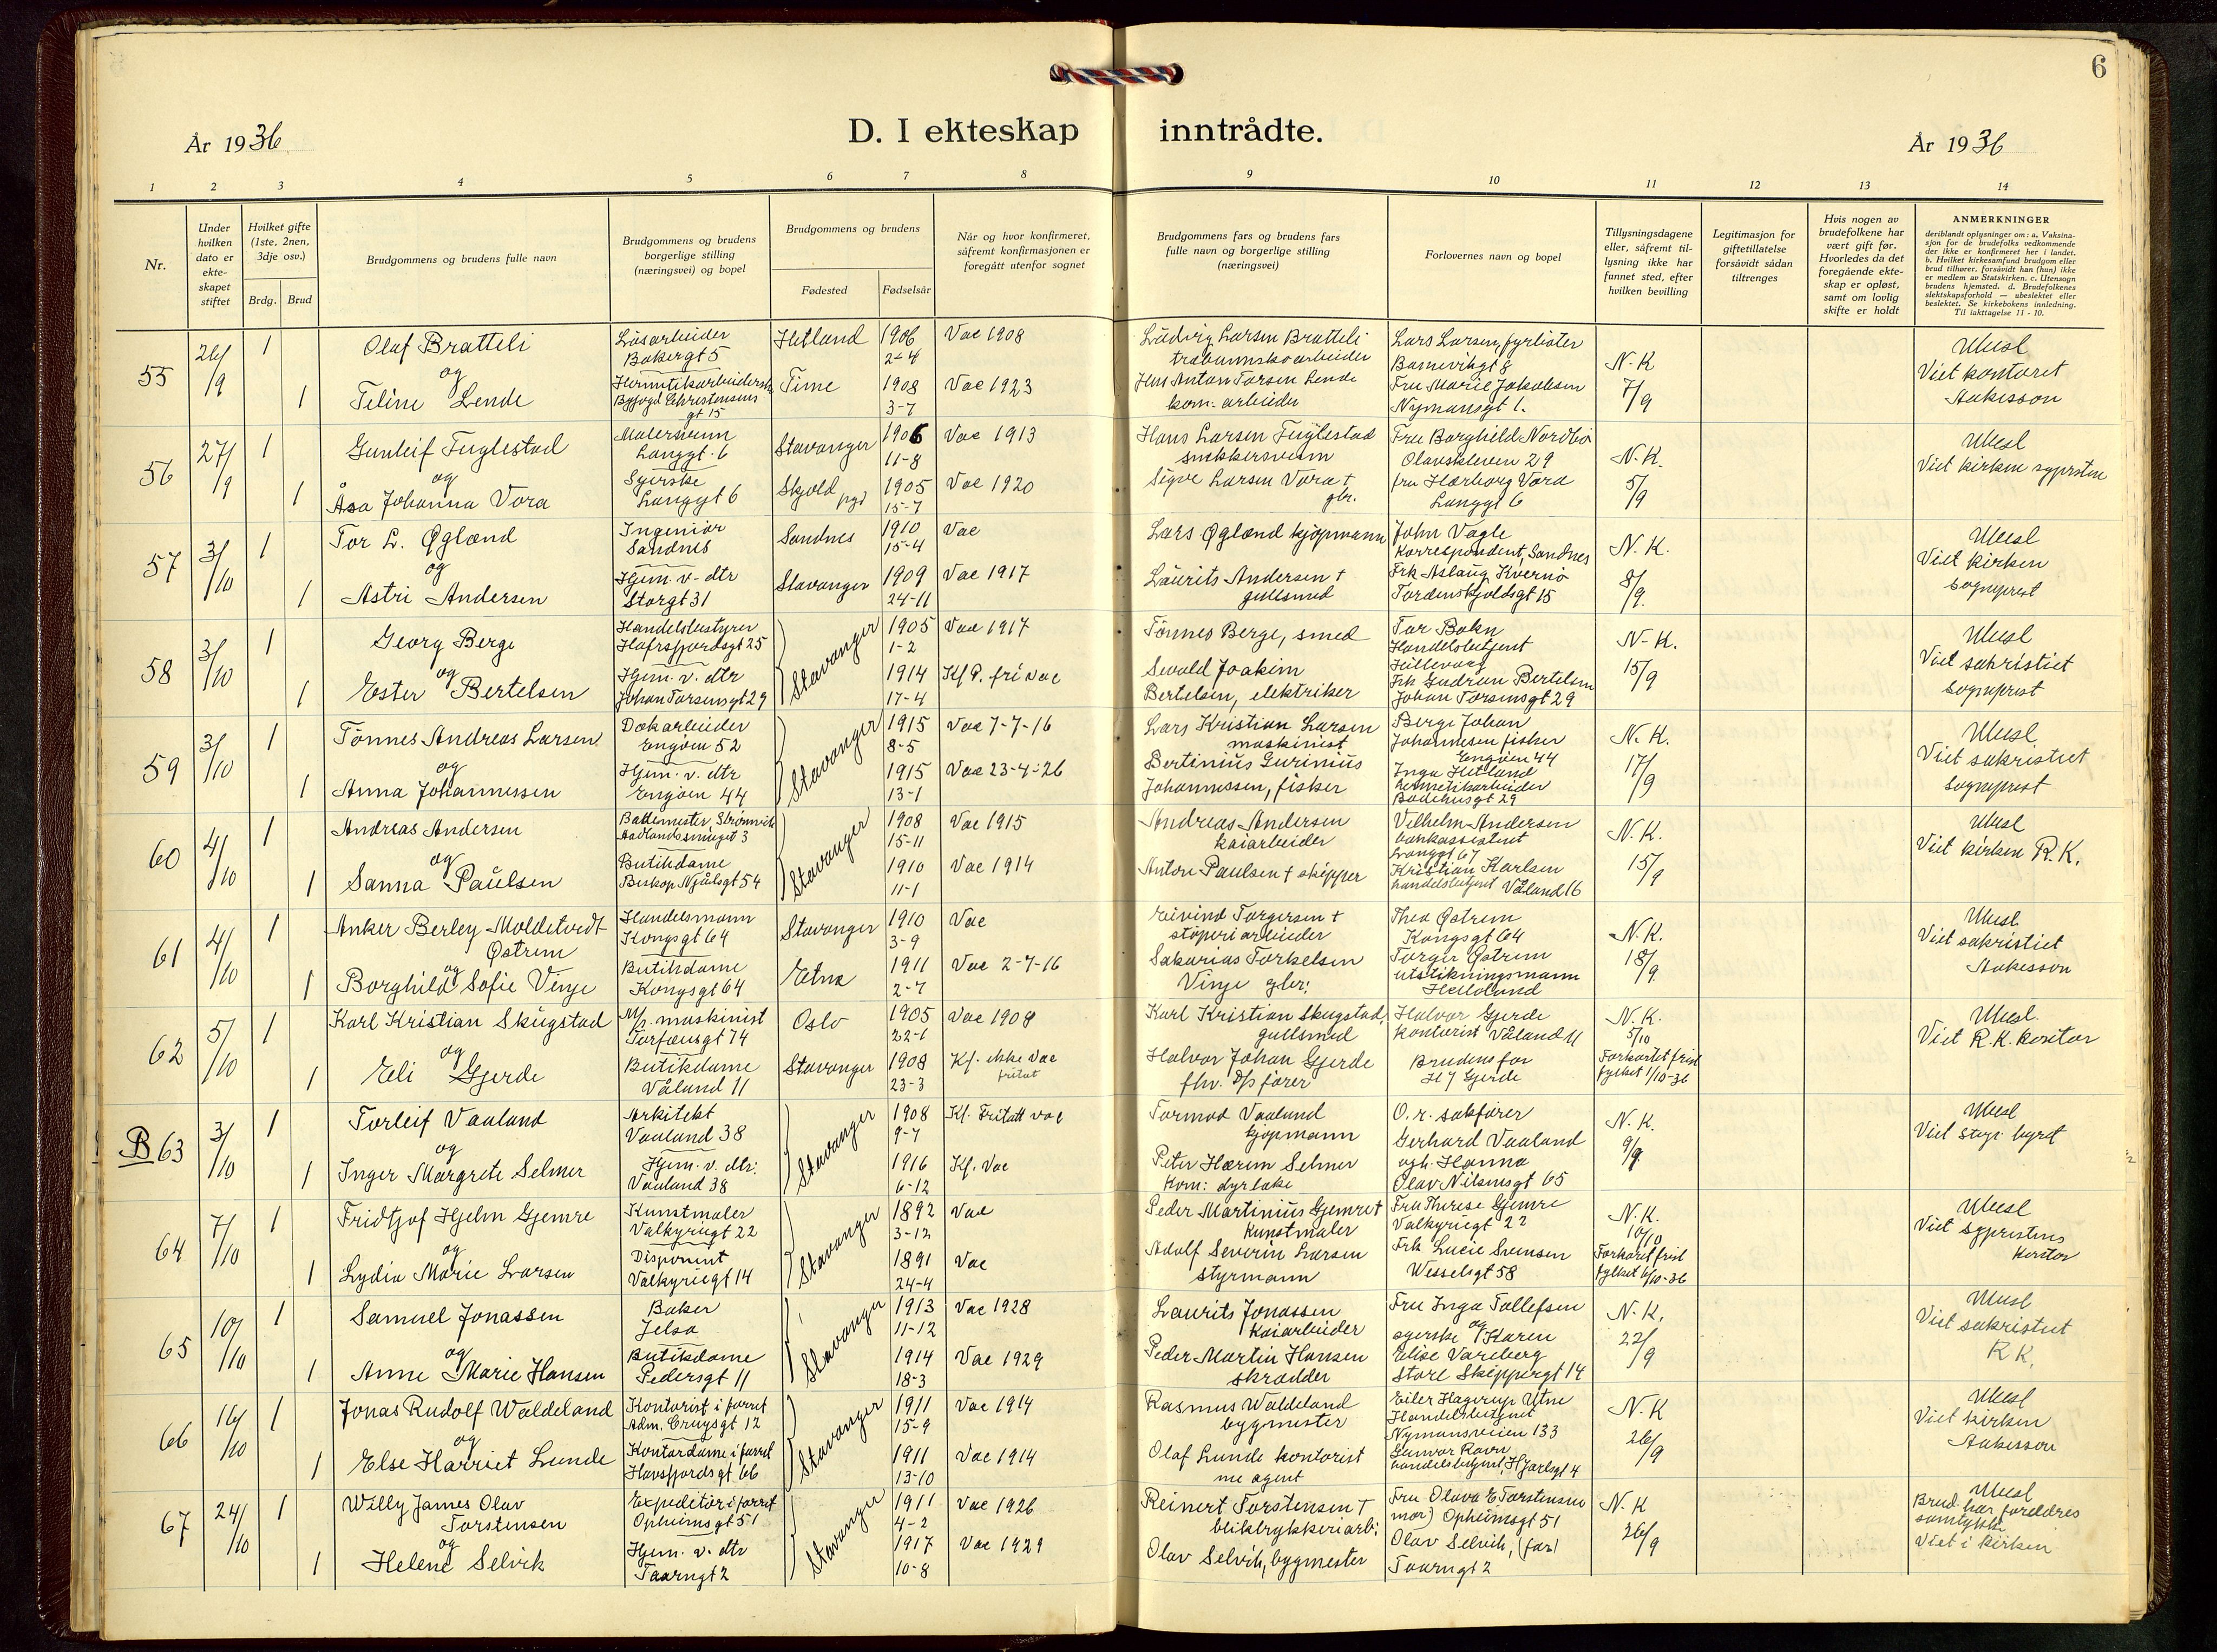 6
År 1936
D. I ekteskap inntrådte.
År 1936
1 2 3 4 5 6 7 8 9 10 11 12 13 14
Nr.
Under hvilken dato er ekte-skapet stiftet
Hvilket gifte (1ste, 2nen, 3dje osv.)
Brdg. Brud
Brudgommens og brudens fulle navn
Brudgommens og brudens borgerlige stilling (næringsvei) og bopel
Brudgommens og brudens
Fødested Fødselsår
Når og hvor konfirmeret, såfremt konfirmasjonen er foregått utenfor sognet
Brudgommens fars og brudens fars fulle navn og borgerlige stilling (næringsvei)
Forlovernes navn og bopel
Tillysningsdagene eller, såfremt til-lysning ikke har funnet sted, efter hvilken bevilling
Legitimasjon for giftetillatelse forsåvidt sådan tiltrenges
Hvis nogen av brudefolkene har vært gift før. Hvorledes da det foregående ekte-skap er opløst, samt om lovlig skifte er holdt
ANMERKNINGER
deriblandt oplysninger om: a. Vaksina-sjon for de brudefolks vedkommende der ikke er konfirmeret her i landet. b. Hvilket kirkesamfund brudgom eller brud tilhører, forsåvidt han (hun) ikke er medlem av Statskirken. c. Utensogn brudens hjemsted. d. Brudefolkenes slektskapsforhold — ubeslektet eller beslektet. Se kirkebokens innledning. Til iakttagelse 11 - 10.
55 26/9 1 Olaf Bratteli Løsarbeider Bakergt 5 Hetland 1906 2-4 Vac 1908 Ludvig Larsen Bratteli Lars Larsen, fyrbøter N.K 7/9 Ubesl
og
1 Teline Lende Hermetikarbeiderske Byfogd Christensens gt 15 Time 1908 3-7 Vac 1923 Anton Torsen Lende kom. arbeider Fru Marie Jakobsen Nymansgt 1. Viet kontoret Aakesson
56 27/9 1 Gunleif Fuglestad Malersvenn Langgt. 6 Stavanger 1906 11-8 Vac 1913 Hans Larsen Fuglestad snekkersvenn Fru Borghild Nordbø Olavskleven 29 N.K. 5/9 Ubesl
og
1 Åsa Johanna Vora Syerske Langgt 6 Skjold pgd 1905 15-7 Vac 1920 Sigve Larsen Vora + gbr. fru Herborg Vora Langgt 6 Viet kirken sgprsten
57 3/10 1 Tor L. Øglænd Ingeniør Sandnes Sandnes 1910 15-4 Vac Lars Øglænd kjøpmann John Vagle Korrespondent, Sandnes N.K. 8/9. Ubesl
og
1 Astri Andersen Hjem. v. dtr Storgt 31 Stavanger 1909 24-11 Vac 1917 Laurits Andersen + gullsmed Frk Aslaug Kvernø Tordenskjoldsgt 15 Viet kirken Sogneprest
58 3/10 1 Georg Berge Handelsbestyrer Hafrsfjordsgt 25 Stavanger 1905 1-2 Vac 1917 Tønnes Berge, smed Tor Bokn Handelsbetjent Hillevåg N.K. 15/9 Ubesl
og
1 Ester Bertelsen Hjem. v. dtr Johan Torsensgt 29 1914 17-4 Kf P. fri vac Sevald Joakim Bertelsen, elektriker Frk Gudrun Bertelsen Johan Torsensgt 29 Viet sakristiet Sogneprest
59 3/10 1 Tønnes Andreas Larsen Dokarbeider Engøen 52 Stavanger 1915 8-5 Vac 7-7-16 Lars Kristian Larsen maskinist Berge Johan Johannesen fisker Engøen 44 N.K. 17/9 Ubesl
og
1 Anna Johannessen Hjem. v. dtr Engøen 44 1915 13-1 Vac 23-4-26 Bertinius Gurinius Johannessen, fisker Inga Hetland hermetikarbeider Badehusgt 29 Viet sakristiet Sogneprest
60 4/10 1 Andreas Andersen Stavanger 1908 15-11 Vac 1915 Andreas Andersen kaiarbeider Vilhelm Andersen bankassistent Langgt 67 N.K. 15/9 Ubesl
og
1 Sanna Paulsen Butikdame Biskop Njålsgt 54 1910 11-1 Vac 1914 Anton Paulsen + skipper Kristian Karlsen handelsbetjent Våland 16 Viet kirken R.K.
61 4/10 1 Anker Berley Moldetvedt Østrem Handelsmann Kongsgt 64 Stavanger 1910 3-9 Vac Eivind Torgersen + støperiarbeider Thea Østrem Kongsgt 64 N.K. 18/9. Ubesl
og
1 Borghild Sofie Vinje Butikdame Kongsgt 64 Etne 1911 2-7 Vac 2-7-16 Sakarias Torkelsen Vinje gbr. Torger Østrem utstikningsmann Viet sakristiet Aakesson
62 5/10 1 Karl Kristian Skugstad M/s. maskinist Torfæusgt 74 Oslo 1905 22-1 Vac 1908 Karl Kristian Skugstad, gullsmed Halvor Gjerde kontorist Våland 11 N.K. 5/10 Ubesl.
og
1 Eli Gjerde Butikdame Våland 11 Stavanger 1908 23-3 Kf. ikke vac fritat Halvor Johan Gjerde fhv. D/s fører Brudens far H J Gjerde Forkortet frist fylket 1/10-36 Viet R.K. kontor
B 63 3/10 1 Torleif Vaaland Arkitekt Vaaland 38 Stavanger 1908 9-7 Kf. Fritatt vac Tormod Vaaland kjøpmann O.r. sakfører Gerhard Vaaland N.K. 9/9. Ubesl
og
1 Inger Margrete Selmer Hjem. v. dtr. Vaaland 38 1916 6-12 Kf. Vac Peter Hærem Selmer Kom: dyrlæke og h. Hanna Olav Nilsensgt 65 Viet
64 7/10 1 Fridtjof Hjelm Gjemre Kunstmaler Valkyriegt 22 Stavanger 1892 3-12 Vac Peder Martinius Gjemre + Kunstmaler Fru Therese Gjemre Valkyriegt 22 N.K. Ubesl
og
1 Lydia Marie Larsen Disponent Valkyriegt 14 1891 24-4 Vac Adolf Severin Larsen styrmann Frk Lucie Svensen Wesselsgt 58 Forkortet frist fylket 6/10-36 Viet sgprestens kontor
65 10/10 1 Samuel Jonassen Baker Jelsa Stavanger 1913 11-12 Vac 1928 Laurits Jonassen Kaiarbeider Fru Inga Tollefsen syerske N.K. 22/9 Ubesl
og
1 Anne Marie Hansen Butikdame Pedersgt 11 1914 18-3 Vac 1929 Peder Martin Hansen skredder og Karen Elise Vareberg Store Skippergt 14 Viet sakristiet R K.
66 16/10 1 Jonas Rudolf Waldeland Kontorist i forret Adm. Cruysgt 12 Stavanger 1911 15-9 Vac 1914 Rasmus Waldeland bygmester Eiler Hagerup Utne Handelsbetjent Nymansveien 133 N.K 26/9 Ubesl
og
1 Else Harriet Lunde Kontordame i forret Havsfjordsgt 66 1911 13-10 Vac 1914 Olaf Lunde kontorist nu agent Gunvor Ravn handelsbetjent, HJarlsgt 4 Viet kirken Aakesson
67 24/10 1 Willy James Olav Torstensen Expeditør i forret Opheimsgt 51 Stavanger 1911 4-2 Vac 1926 Reinert Torstensen + bliktrykkeriarb: Fru Olava E Torstensen mor) Opheimsgt 51 N.K 26/9 Ubesl
og
1 Helene Selvik Hjem. v. dtr Taarngt 2 1917 10-8 Vac 1929 Olav Selvik, bygmester Olav Selvik, (far) Taarngt 2 Brud har foreldres samtykke Viet i kirken